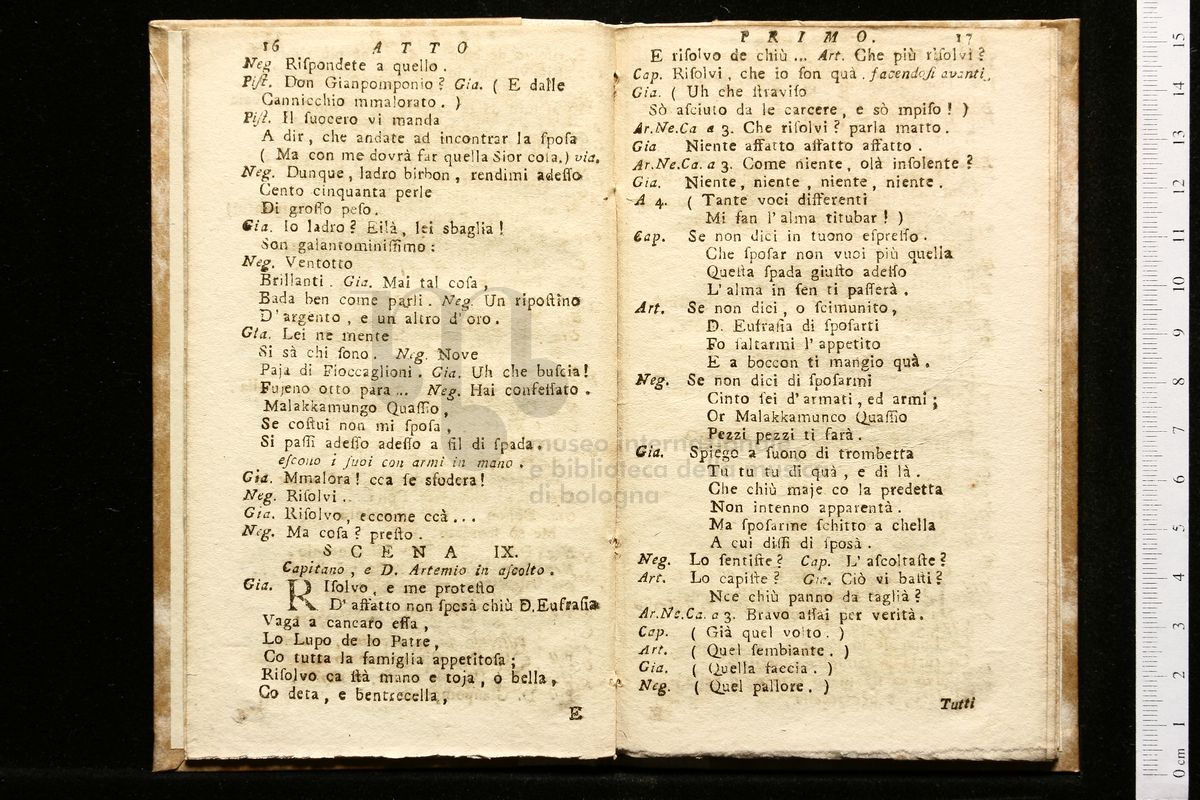 16 ATTO
Neg. Riſpondete a quello.
Piſt. Don Gianpomponio? Gia. ( E dalle
Cannicchio mmalorato. )
Piſt. Il ſuocero vi manda
A dir, che andate ad incontrar la ſpoſa
( Ma con me dovrà far quella Sior coſa.) via.
Neg. Dunque, ladro birbon, rendimi adeſſo
Cento cinquanta perle
Di groſſo peſo.
Gia. Io ladro? Eilà, lei sbaglia!
Son galantominiſſimo:
Neg. Ventotto
Brillanti. Gia. Mai tal coſa,
Bada ben come parli. Neg. Un ripoſtino
D'argento, e un altro d'oro.
Gia. Lei ne mente
Si sà chi ſono. Neg. Nove
Paja di Fioccaglioni. Gia. Uh che buſcia!
Fujeno otto para... Neg. Hai confeſſato.
Malakkamungo Quaſſio,
Se coſtui non mi ſpoſa,
Si paſſi adeſſo adeſſo a fil di ſpada.
eſcono i ſuoi con armi in mano.
Gia. Mmalora! cca ſe sfodera!
Neg. Riſolvi..
Gia. Riſolvo, eccome ccà...
Neg. Ma coſa? preſto.
SCENA IX.
Capitano, e D. Artemio in aſcolto.
Gia. Riſolvo, e me proteſto
D'affatto non ſpoſà chiù D. Eufraſia
Vaga a cancaro eſſa,
Lo Lupo de lo Patre,
Co tutta la famiglia appetitoſa;
Riſolvo ca ſtà mano e toja, o bella,
Co deta, e bentrecella,
E
PRIMO. 17
E riſolvo de chiù ... Art. Che più riſolvi?
Cap. Riſolvi, che io ſon quà. facendoſi avanti.
Gia. ( Uh che ſtraviſo
Sò aſciuto da le carcere, e sò mpiſo! )
Ar.Ne.Ca a 3. Che riſolvi? parla matto.
Gia Niente affatto affatto affatto.
Ar.Ne.Ca. a 3. Come niente, olà inſolente?
Gia. Niente, niente, niente, niente.
A 4. ( Tante voci differenti
Mi fan l'alma titubar! )
Cap. Se non dici in tuono eſpreſſo.
Che ſpoſar non vuoi più quella
Queſta ſpada giuſto adeſſo
L'alma in ſen ti paſſerà.
Art. Se non dici, o ſcimunito,
D. Eufraſia di ſpoſarti
Fo ſaltarmi l'appetito
E a boccon ti mangio quà.
Neg. Se non dici di ſpoſarmi
Cinto ſei d'armati, ed armi;
Or Malakkamunco Quaſſio
Pezzi pezzi ti farà.
Gia. Spiego a ſuono di trombetta
Tu tu tu di quà, e di là.
Che chiù maje co la predetta
Non intenno apparentà.
Ma ſpoſarme ſchitto a chella
A cui diſſi di ſposà.
Neg. Lo ſentiſte? Cap. L'aſcoltaſte?
Art. Lo capiſte? Gia. Ciò vi baſti?
Nce chiù panno da taglià?
Ar.Ne.Ca. a 3. Bravo aſſai per verità.
Cap. ( Già quel volto. )
Art. ( Quel ſembiante. )
Gia. ( Quella faccia. )
Neg. ( Quel pallore. )
Tutti
museo internazionale
e biblioteca della musica
di bologna
0 cm 1 2 3 4 5 6 7 8 9 10 11 12 13 14 15